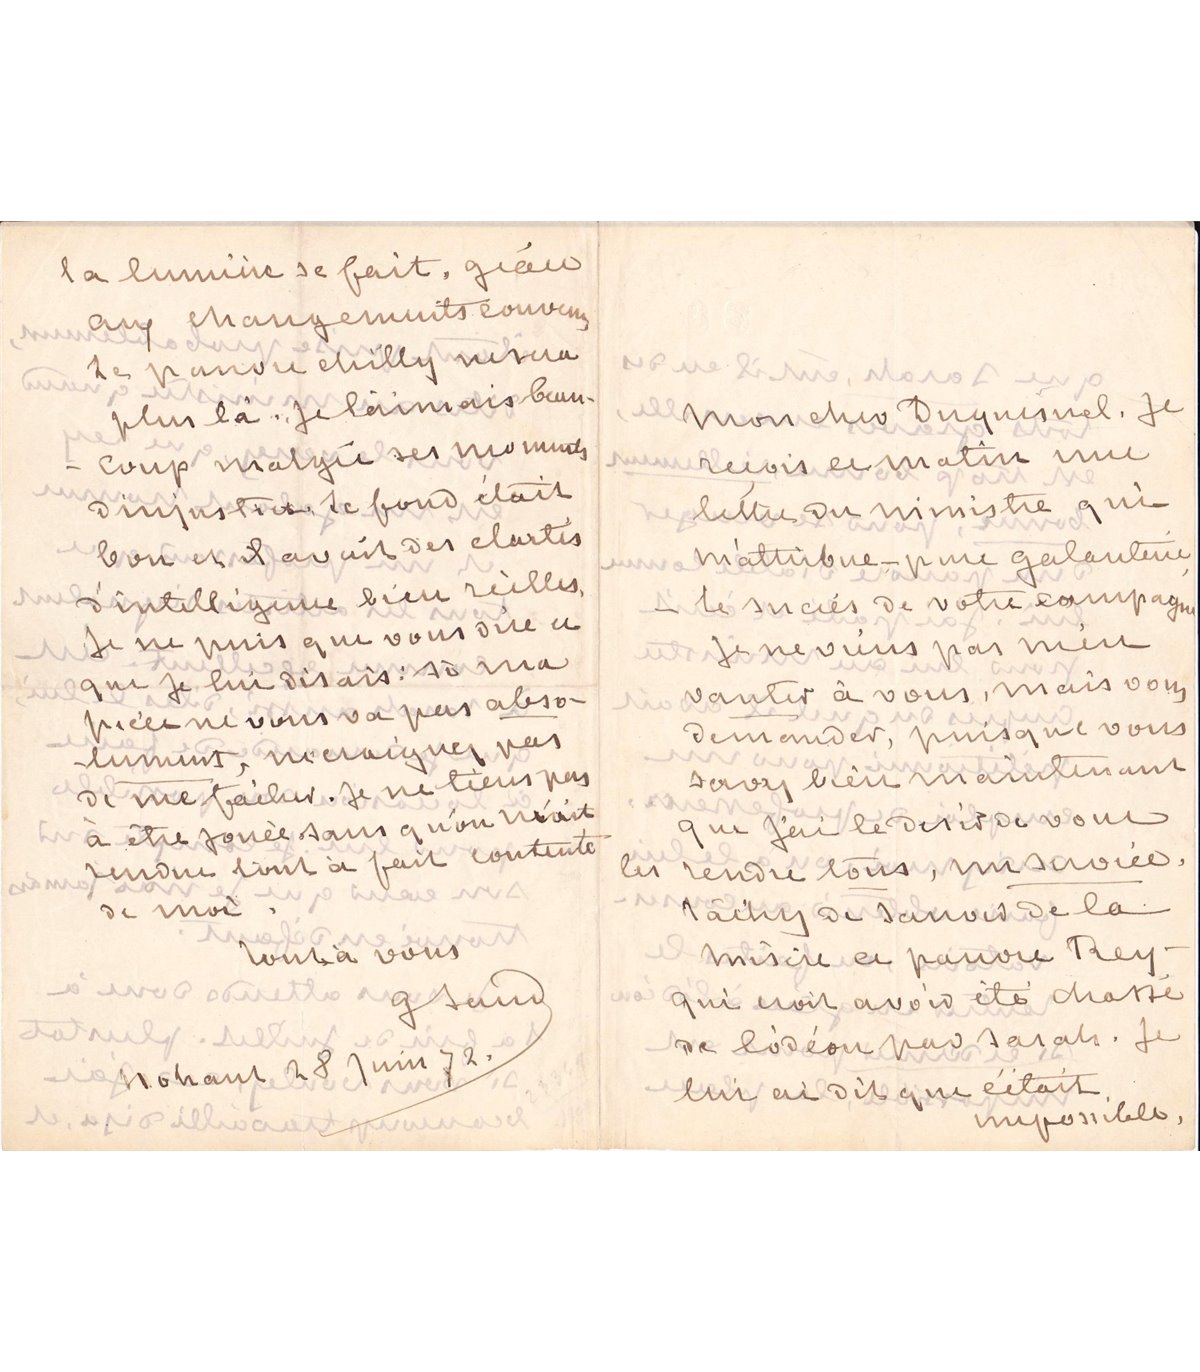 Mon cher Duquesnel. Je
reçois ce matin une
lettre du ministre qui
m'attribue – pure galanterie,
– le succès de votre campagne
Je ne viens pas m'en
vanter à vous, mais vous
demander, puisque vous
savez bien maintenant
que j'ai le désir de vous
les rendre tous, un service.
tâchez de sauver de la
misère ce pauvre Rey –
qui croit avoir été chassé
de l'odéon par Sarah. Je
lui ai dit que c'était
impossible.
la lumière se fait. grâce
aux changements convenus
Le pauvre chilly ne sera
plus là. Je l'aimais beau-
– coup malgré ses moments
d'injustice. Le fond était
bon et il avait des clartés
d'intelligence bien réelles.
Je ne puis que vous dire ce
que je lui disais: si ma
pièce ne vous va pas abso-
-lument, ne craignez pas
de me fâcher. Je ne tiens pas
à être jouée sans qu'on
rendue tout à fait contente
de moi.
Tout à vous
G Sand
Nohant 28 Juin 72.